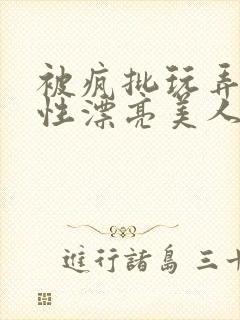 被疯批玩弄
性漂亮美人
进行諸島 三十